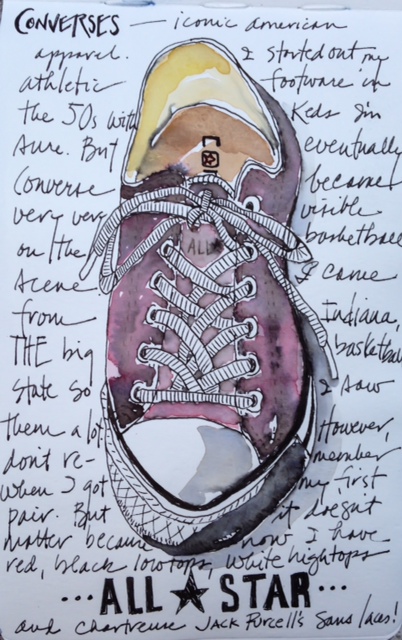 CONVERSES — iconic american
apparel. I started out my
athletic footware in
the 50s with Keds I'm
sure. But eventually
Converse became
very very visible
on the basketball
scene I came
from Indiana,
THE big basketball
state so I saw
them a lot However,
don't re- member
when I got my first
pair. But it doesn't
matter because now I have
red, black low tops, white hightops
ALL
···ALL ★ STAR···
and chartreuse JACK PURCELL'S Sans laces!